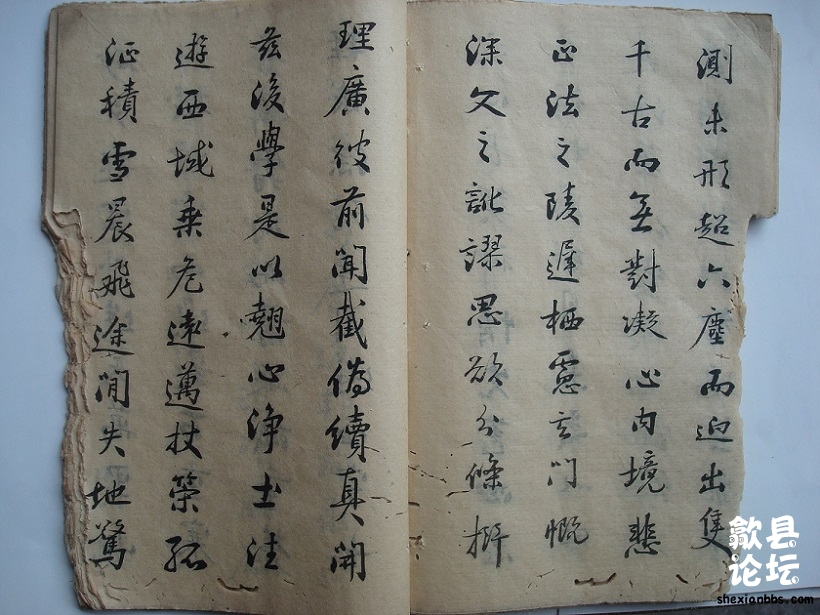 測未形超六塵而迥出隻
千古而無對凝心內境悲
正法之陵遲栖慮玄門慨
深文之訛謬思欲分條析
理廣彼前聞截偽續真開
茲後學是以翹心淨土法
遊西域乗危遠邁杖策孤
征積雪晨飛途閒失地驚
歙县
论坛
shexianbbs.com